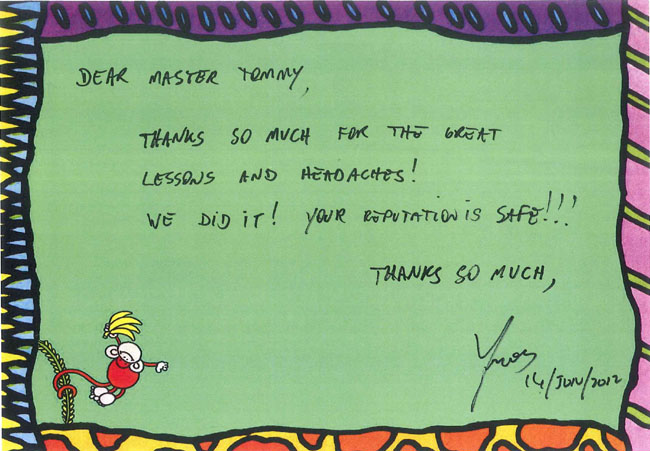 DEAR MASTER TOMMY,
THANKS SO MUCH FOR THE GREAT
LESSONS AND HEADACHES!
WE DID IT! YOUR REPUTATION IS SAFE!!!
THANKS SO MUCH,
Yves
14/JUN/2012